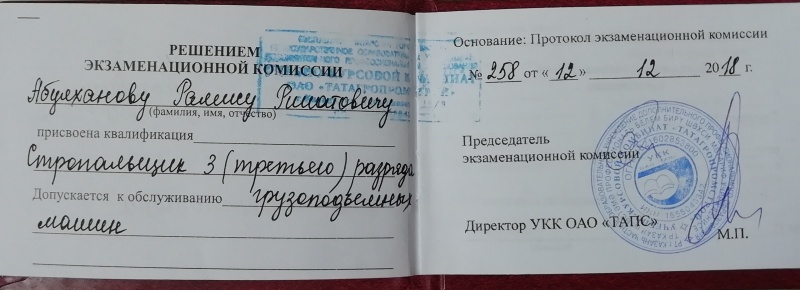 РЕШЕНИЕМ
ЭКЗАМЕНАЦИОННОЙ КОМИССИИ
Абулханову Рамису Ришатовичу
(фамилия, имя, отчество)
присвоена квалификация
Стропальщик 3 (третьего) разряда
Допускается к обслуживанию грузоподъемных
машин
Основание: Протокол экзаменационной комиссии
№ 258 от « 12 » 12 2018 г.
Председатель
экзаменационной комиссии
Директор УКК ОАО «ТАПС»
М.П.